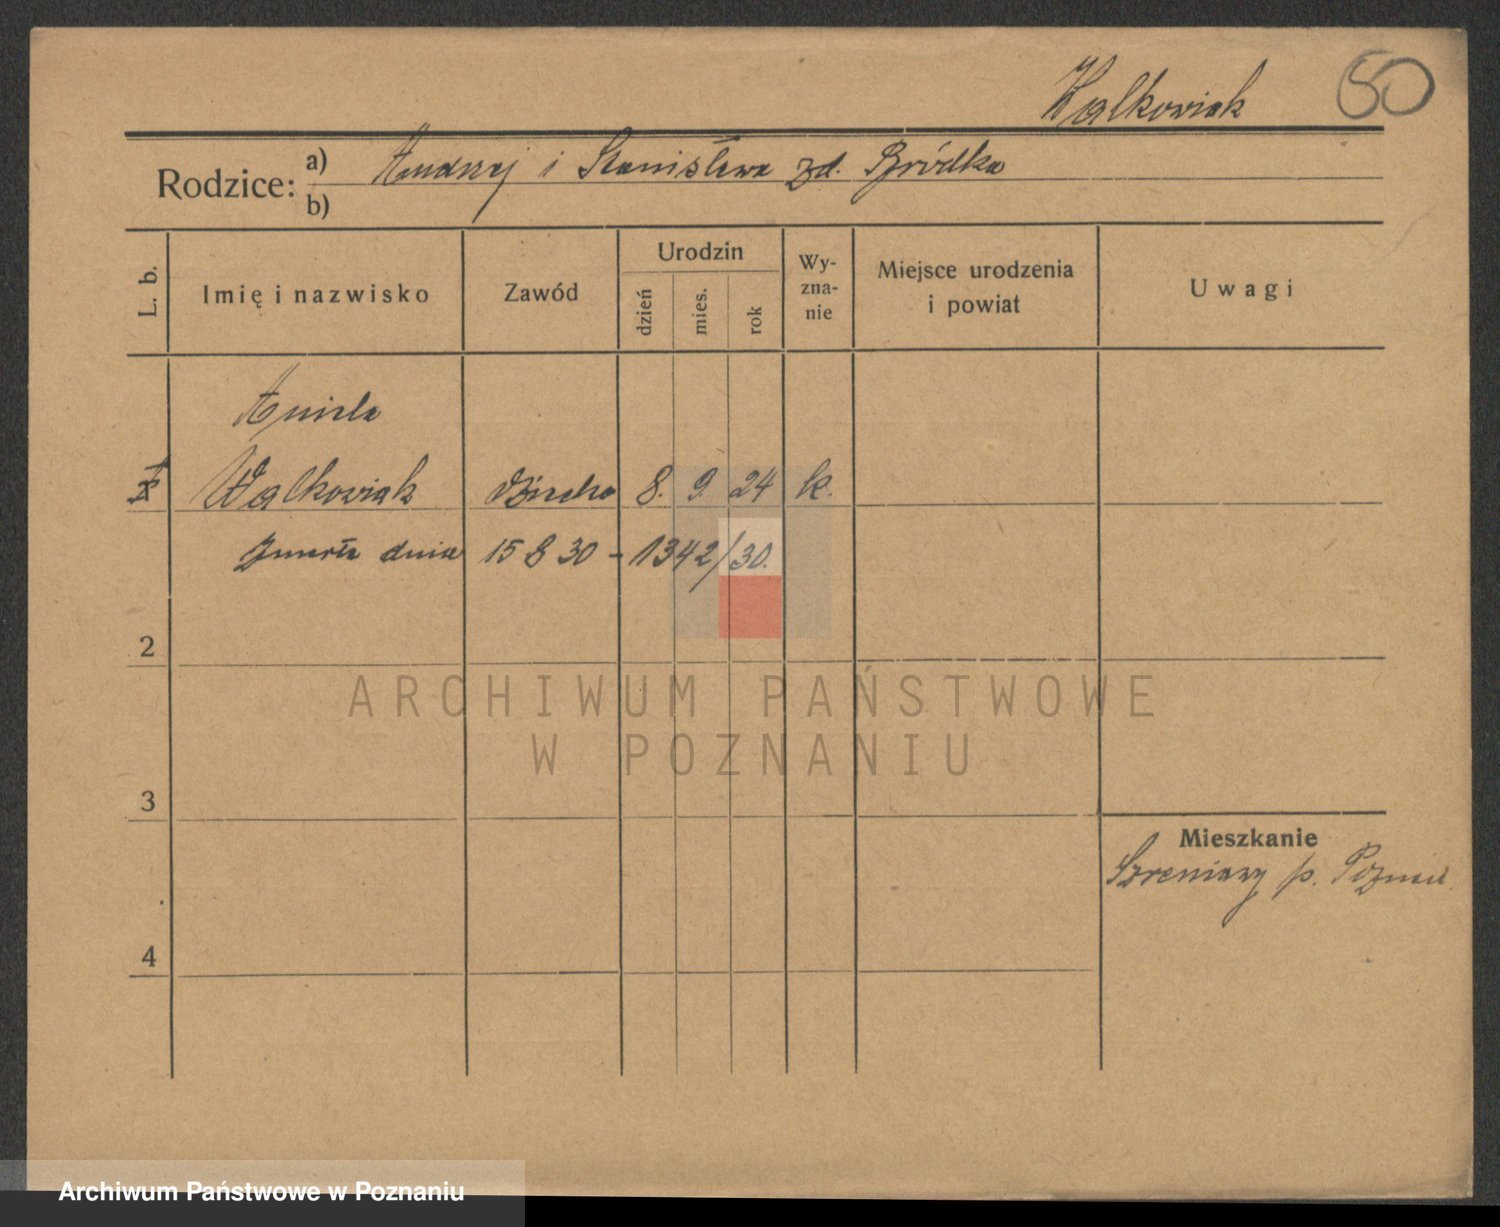 Walkowiak 50
Rodzice: a) Andrzej i Stanisława zd. Bródka
b)
L. b. Imię i nazwisko Zawód Urodzin dzień mies. rok Wy-zna-nie Miejsce urodzenia i powiat Uwagi
Aniela
Walkowiak 8. 9. 24 k.
Zmarła dnia 15 8 30 - 1342/30.
2
3
Mieszkanie
p. Poznań
4
ARCHIWUM PAŃSTWOWE
W POZNANIU
Archiwum Państwowe w Poznaniu